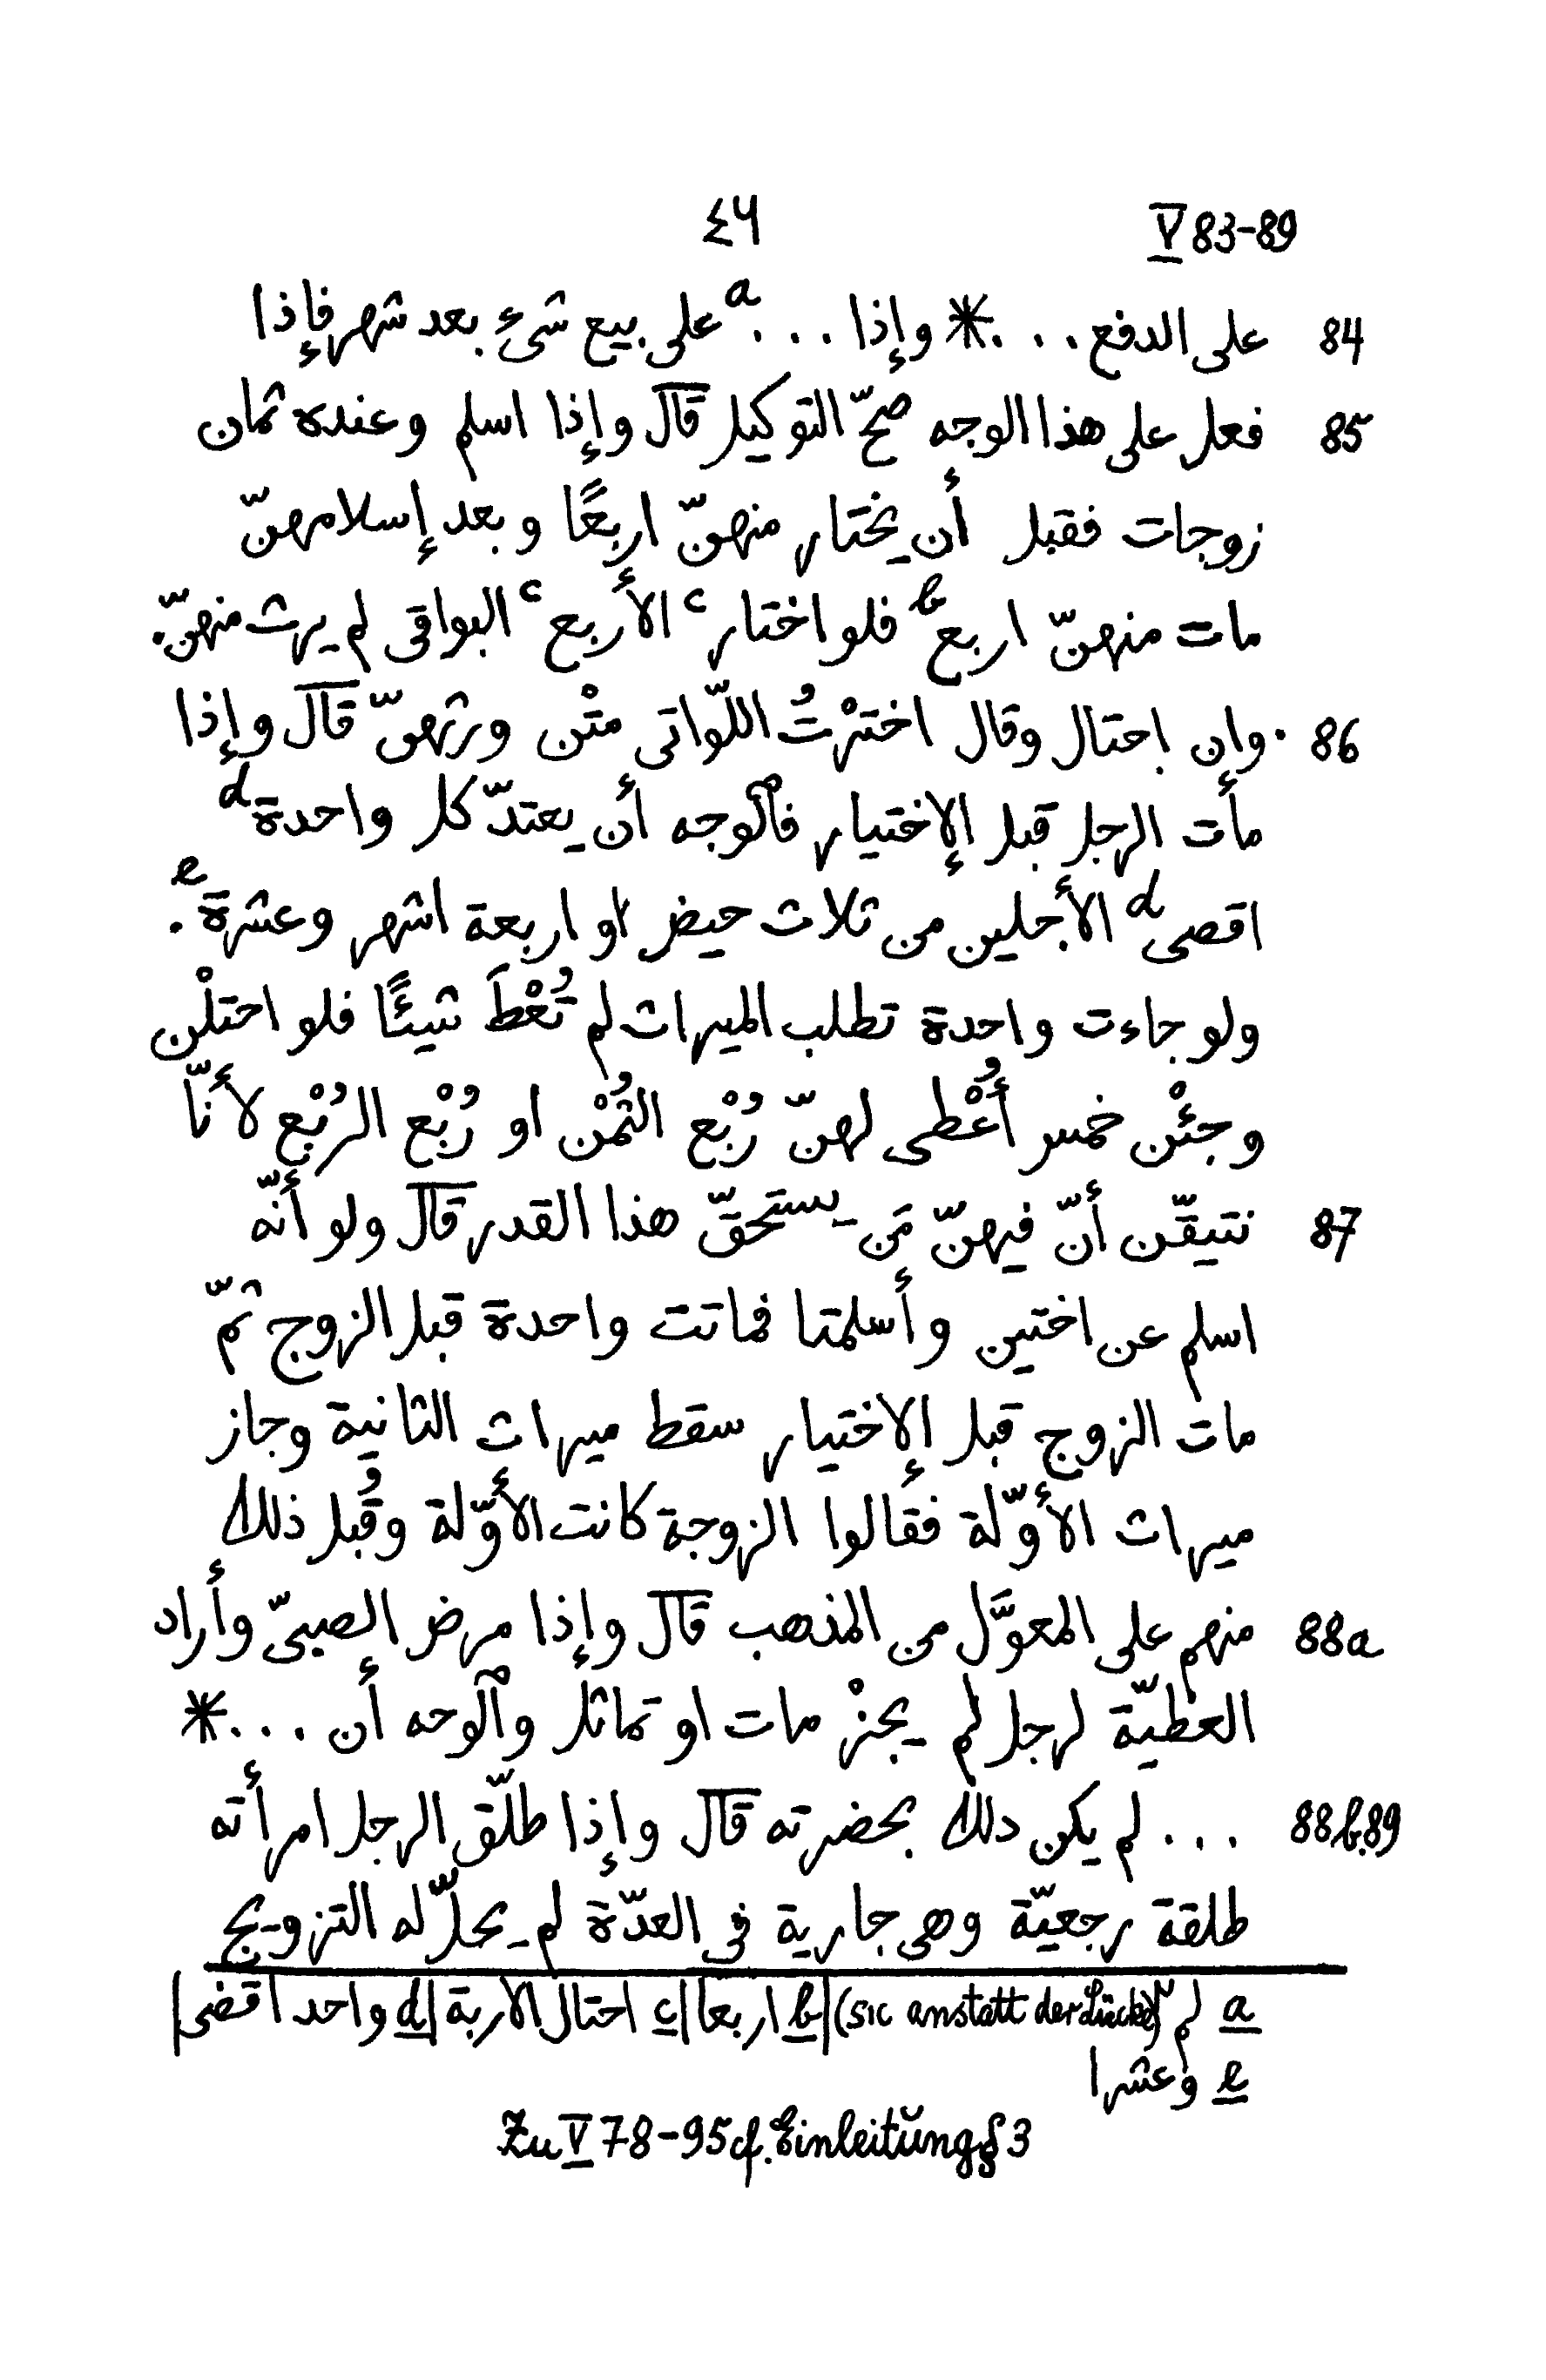 V 83-89 ٤٦
84 على الدفع . . . * وإذا . . . a على بيع شىء بعد شهر فإذا
85 فعل على هذا الوجه صحّ التوكيل قال وإذا اسلم وعنده ثمان
زوجات فقبل أن يختار منهنّ اربعًا وبعد إسلامهنّ
مات منهنّ اربع b فلو اختار c الأربع c البواقى لم يرث منهنّ.
86 . وإن احتال وقال اخترْتُ اللّواتى متْن ورثهنّ قال وإذا
مأت الرجل قبل الإختيار فٱلوجه أن يعتدّ كل واحدة d
اقصى d الأجلين من ثلاث حيض او اربعة اشهر وعشرة e .
ولو جاءت واحدة تطلب الميراث لم تُعْطَ شيئًا فلو احتلْن
وجئْن خمس أُعْطى لهنّ رُبْع الثُمْن او رُبْع الرُبْع لأنّا
87 نتيقّن أنّ فيهنّ مَن يستحقّ هذا القدر قال ولو أنّه
اسلم عن اختين وأسلمتا فماتت واحدة قبل الزوج ثمّ
مات الزوج قبل الإختيار سقط ميراث الثانية وجاز
ميراث الأوّلة فقالوا الزوجة كانت الأوّلة وقُبل ذلك
88a منهم على المعوَّل من المذهب قال وإذا مرض الصبىّ وأراد
العطيّة لرجل لم يجزْ مات او تماثل وٱلوحه أن . . . *
88b.89 . . . لم يكن دلك بحضرته قال وإذا طلّق الرجل امرأته
طلقة رجعيّة وهى جارية فى العدّة لم يحلّ له التزويج
a لم (sic anstatt der Lücke) | b اربعا | c احتال الاربة | d واحد اقضى |
e وعشرا
Zu V 78-95 cf. Einleitung § 3